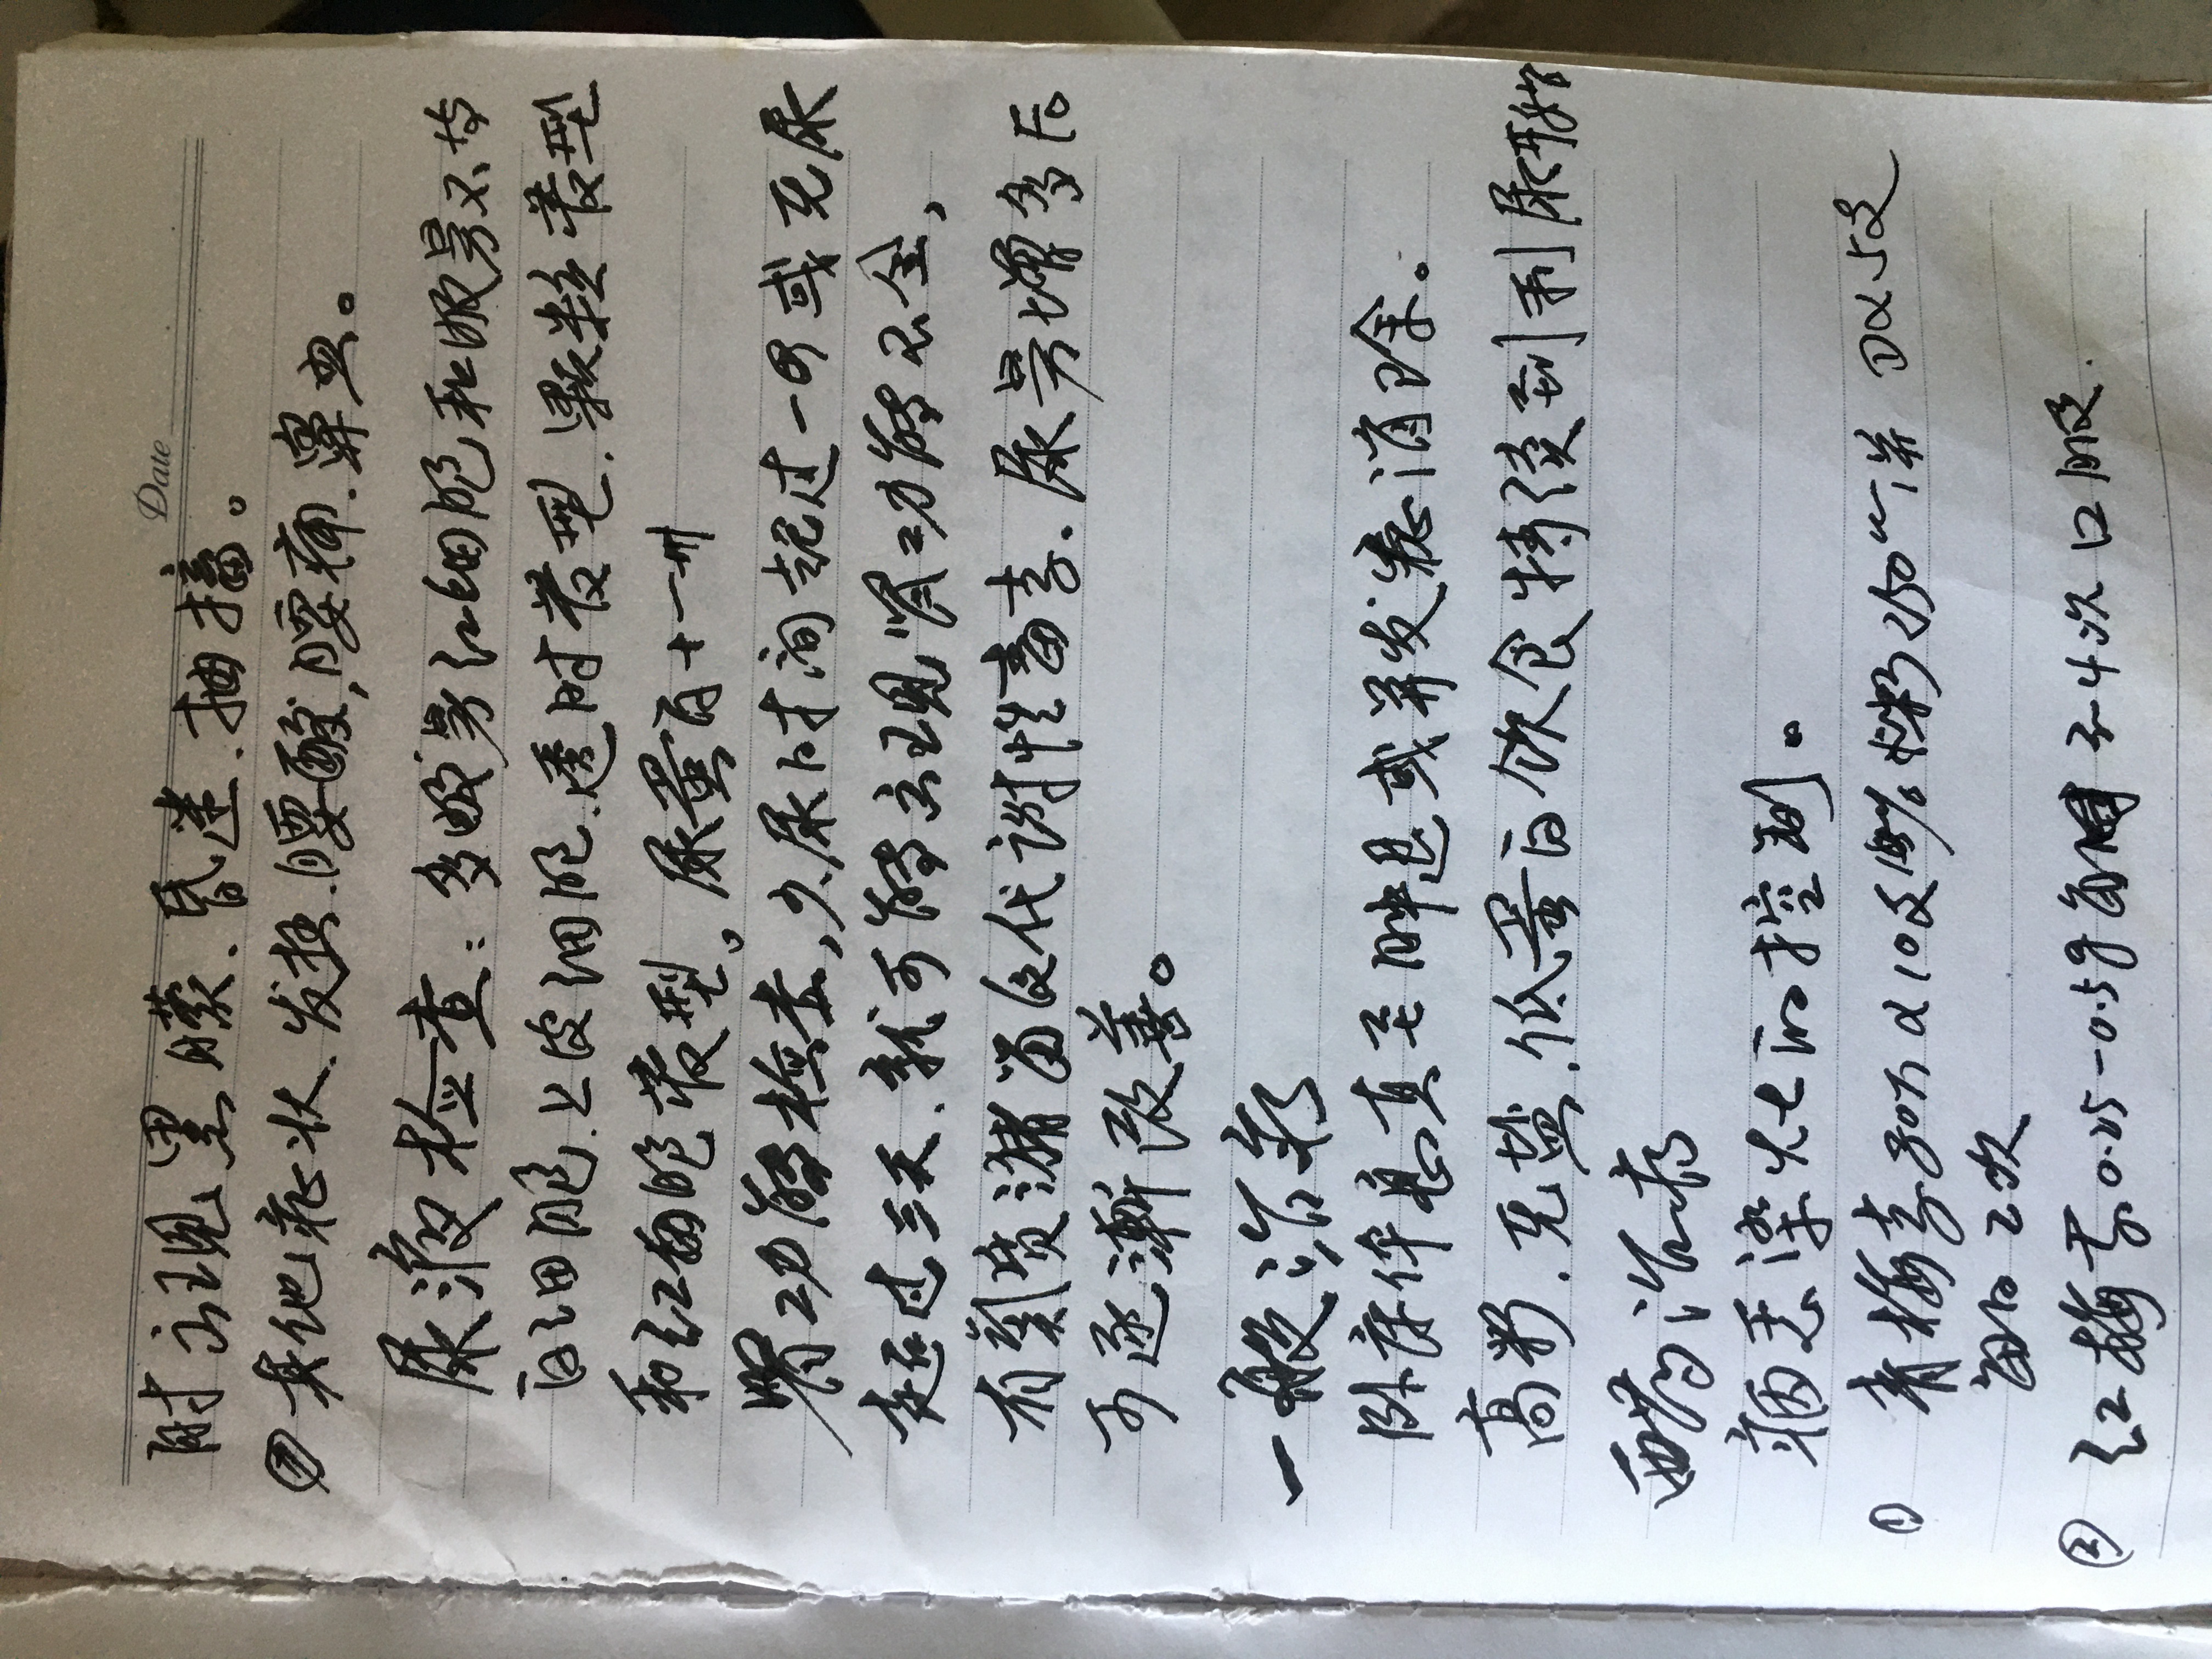 Date
时出现黑矇、昏迷、抽搐。
③其他症状、发热、腰酸,腰痛、鼻血。
尿液检查:多吸号红细胞和吸号不等
白细胞、上皮细胞、透时管型、颗粒管型
和红细胞管型。尿蛋白+一卅
肾功能检查,少尿时间超过一周或无尿
超过三天、就可能出现肾功能不全,
有氮质潴留及代谢性毒素、尿量增多后
可逐渐改善。
一般治疗
卧床休息直至肿退或并发症消除。
高糖、无盐、低蛋白饮食持续到利尿开始
西药治疗
病 染灶的控制。
① 青梅素80万×10支 10% 糖250 5支
每日2次
② 红梅素0.25-0.5g每 3-4次口服.